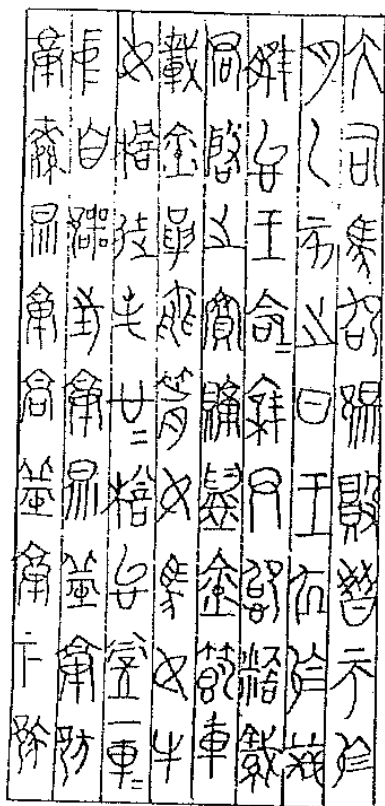 大司馬卲剔敗晉帀於
月乙亥之日王凥於茂
脽台王命=集尹悼糈裁
君啟之府賡鑄金節車
載金革黽箭女馬女牛
女檐徒屯廿=檐台堂一車=
中自鄂往庚昜丘庚邡
庚繁昜庚高丘庚下蔡